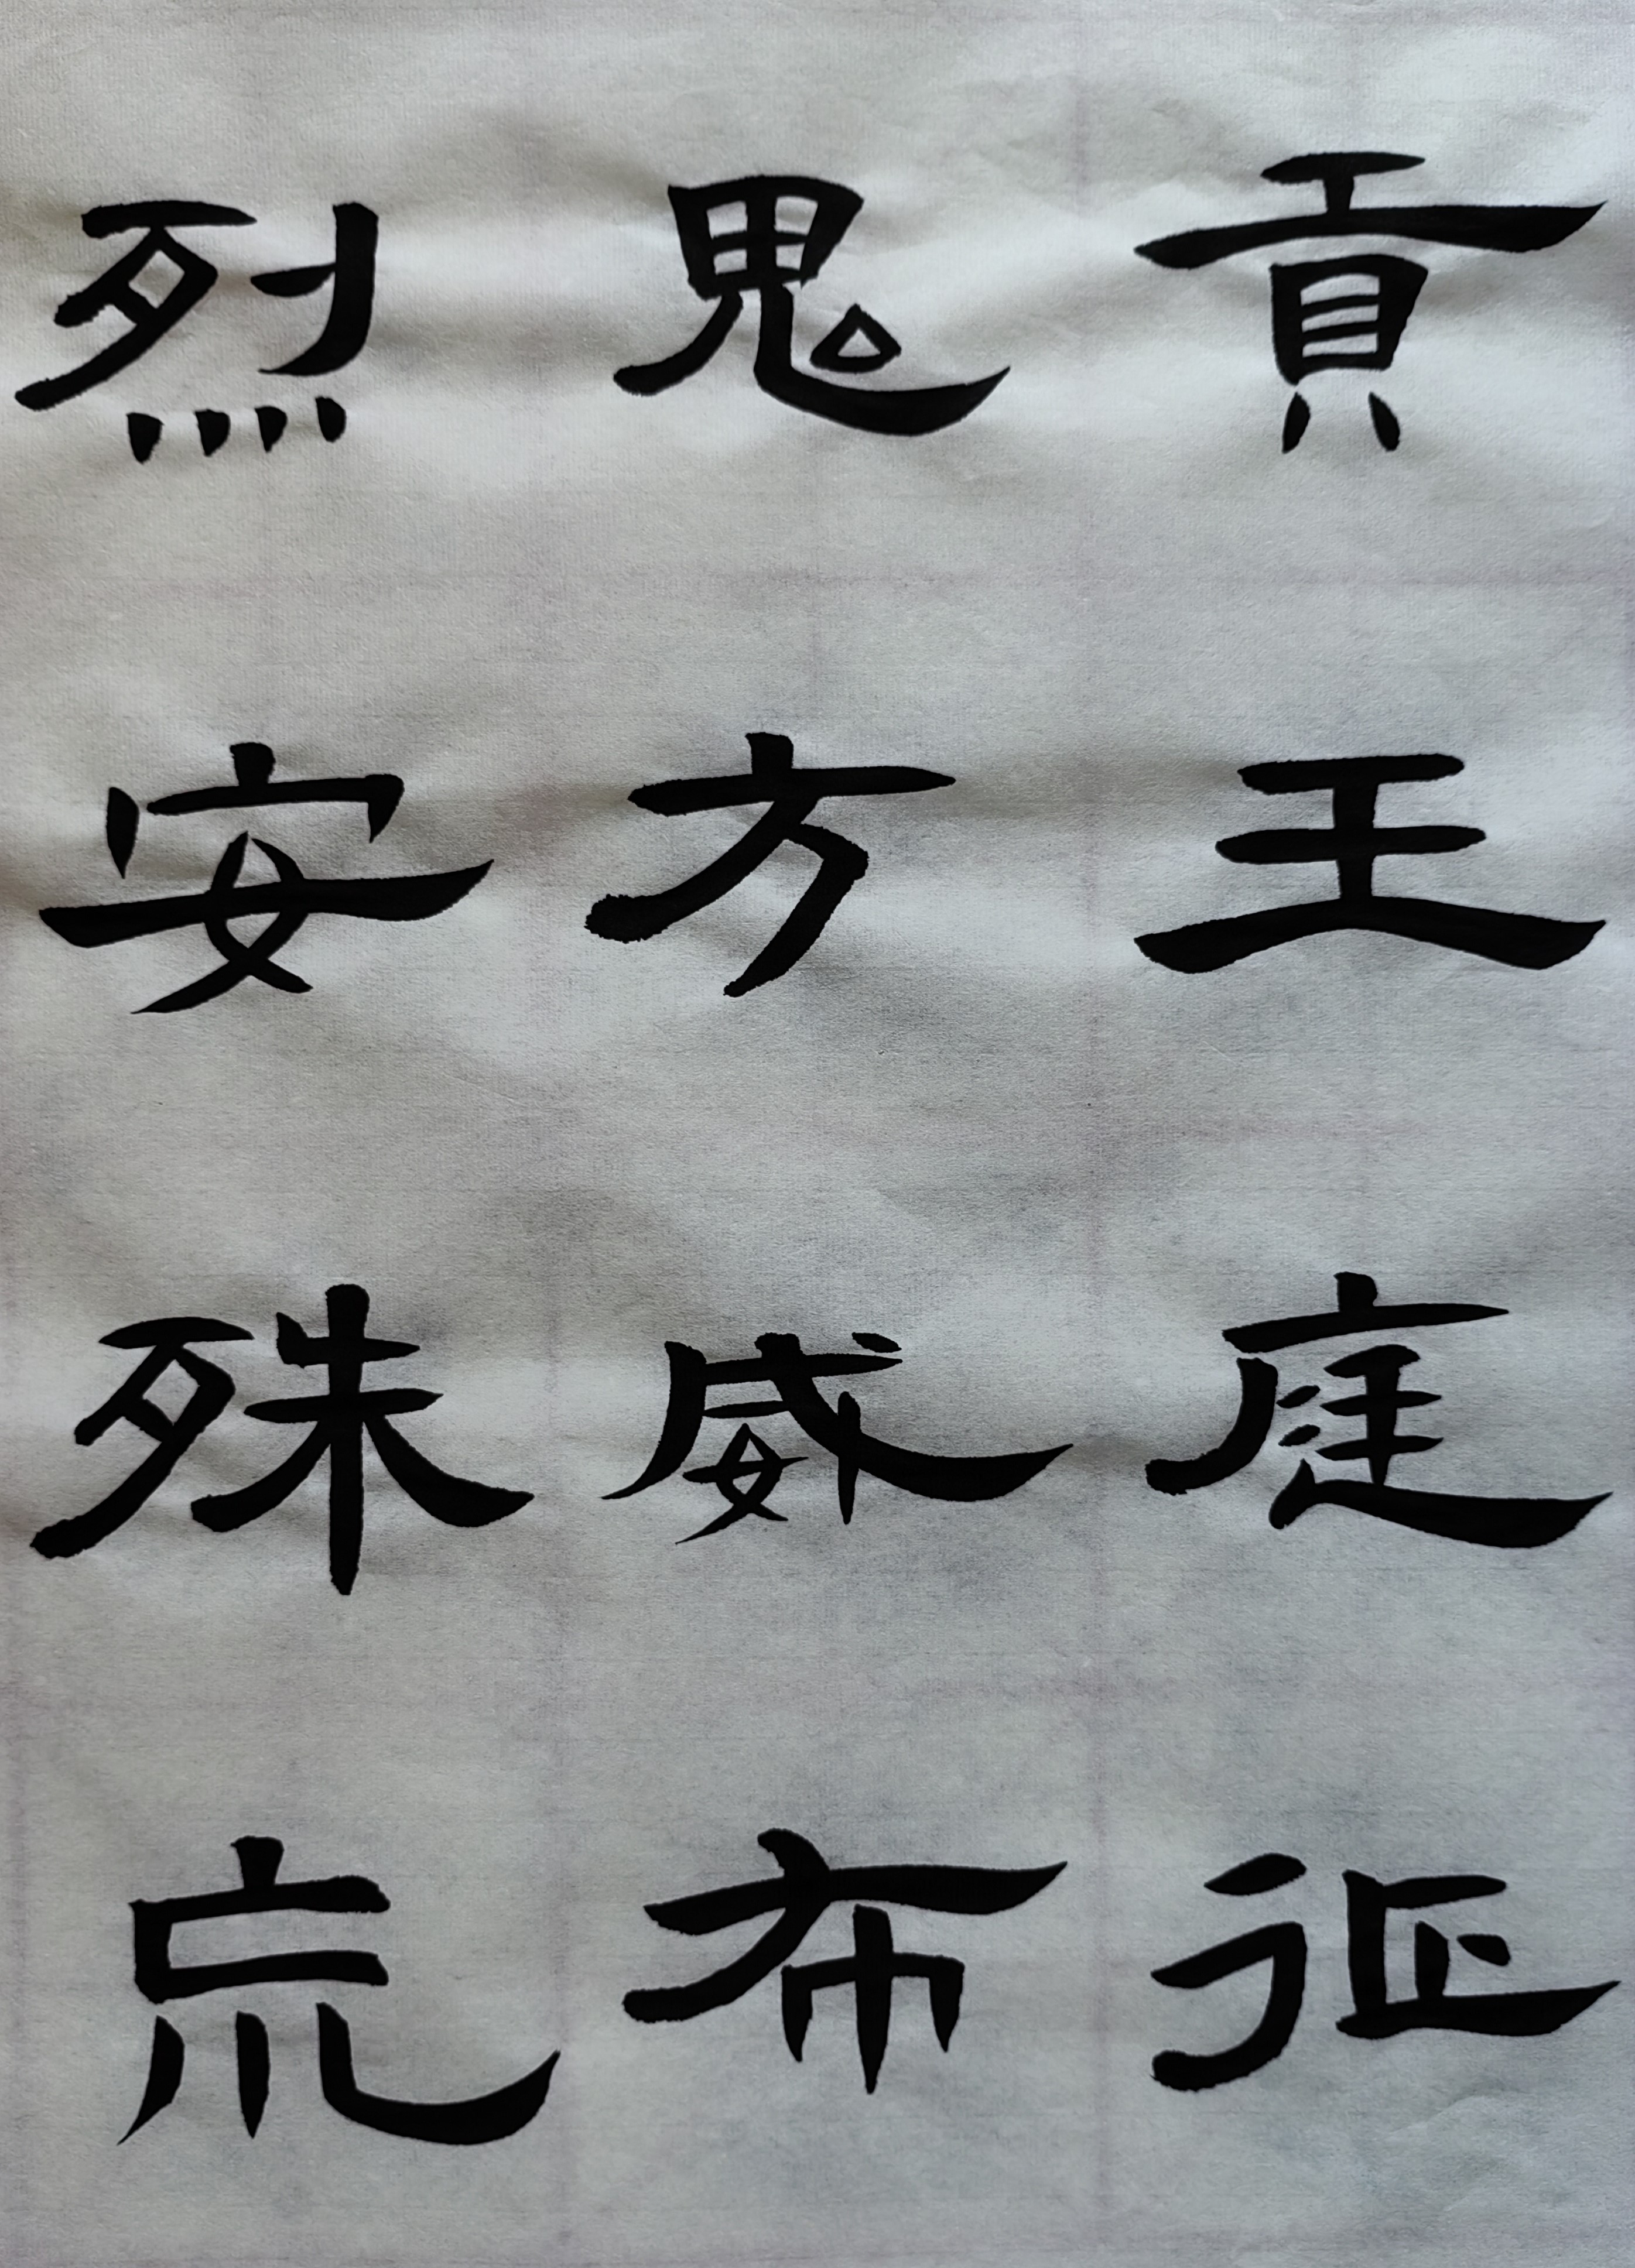 貢王庭征
鬼方威布
烈安殊巟